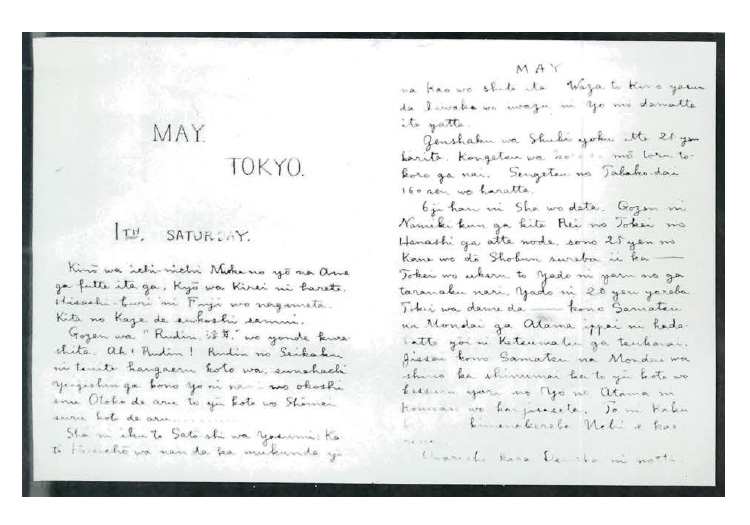 MAY.
TOKYO.
1TH. SATURDAY.
Kinō wa ichi-nichi Nuka no yō na Ame
ga futte ita ga, Kyō wa Kirei ni hareta.
Hisashi-buri ni Fuji wo nagameta.
Kita no Kaze de sukoshi samui.
Gozen wa "Rudin, wo yonde kura-
shita. Ah! Rudin! Rudin no Seikaku
ni tsuite kangaeru koto wa, sunawachi
ga kono Yo ni wo okoshi
Otoko de aru to yū koto wo Shōmei
suru koto de aru..........
Sha ni iku to Satō-shi wa Yasumi: Ka-
tō wa nan da ka muku
MAY
na Kao wo shite ita Waza to Kino yasun
da Iiwake wo iwazu ni Yo mo damatte
ite yatta.
Zenshaku wa Shubi yoku itte 25 yen
karita. Kongetsu wa mō toru to-
koro ga nai. Sengetsu no Tabako-dai
160 sen wo haratta.
6ji han ni Sha wo deta. Gozen ni
Namiki kun ga kite Rei no Tokei no
Hanashi ga atta node, sono 25 yen no
Kane wo dō Shobun sureba ii ka —
Tokei wo ukeru to Yado ni yaru no ga
taranaku naru. Yado ni 20 yen yareba
Tokei wa dame da — kono Samatsu
na Mondai ga Atama ippai ni hada-
ni Ketsumatsu ga tsukanai.
Jissai kono Samatsu na Mondai wa
shinu ka shinumai ka to yū koto wo
kessuru yori mo Yo no Atama ni
Konnan wo kanjisaseta. To ni Kaku
kimenakereba Uchi e kae
Hara Densha ni notta.